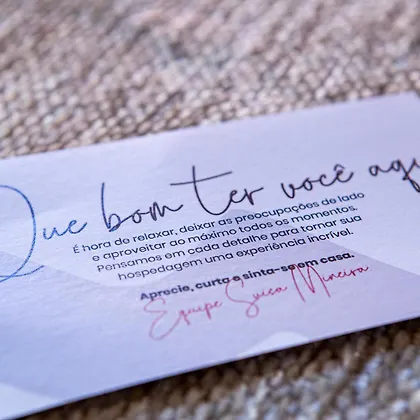 Que bom ter você aqu
É hora de relaxar, deixar as preocupações de lado
e aproveitar ao máximo todos os momentos.
Pensamos em cada detalhe para tornar sua
hospedagem uma experiência incrível.
Aprecie, curta e sinta-se em casa.
Equipe Suíça Mineira